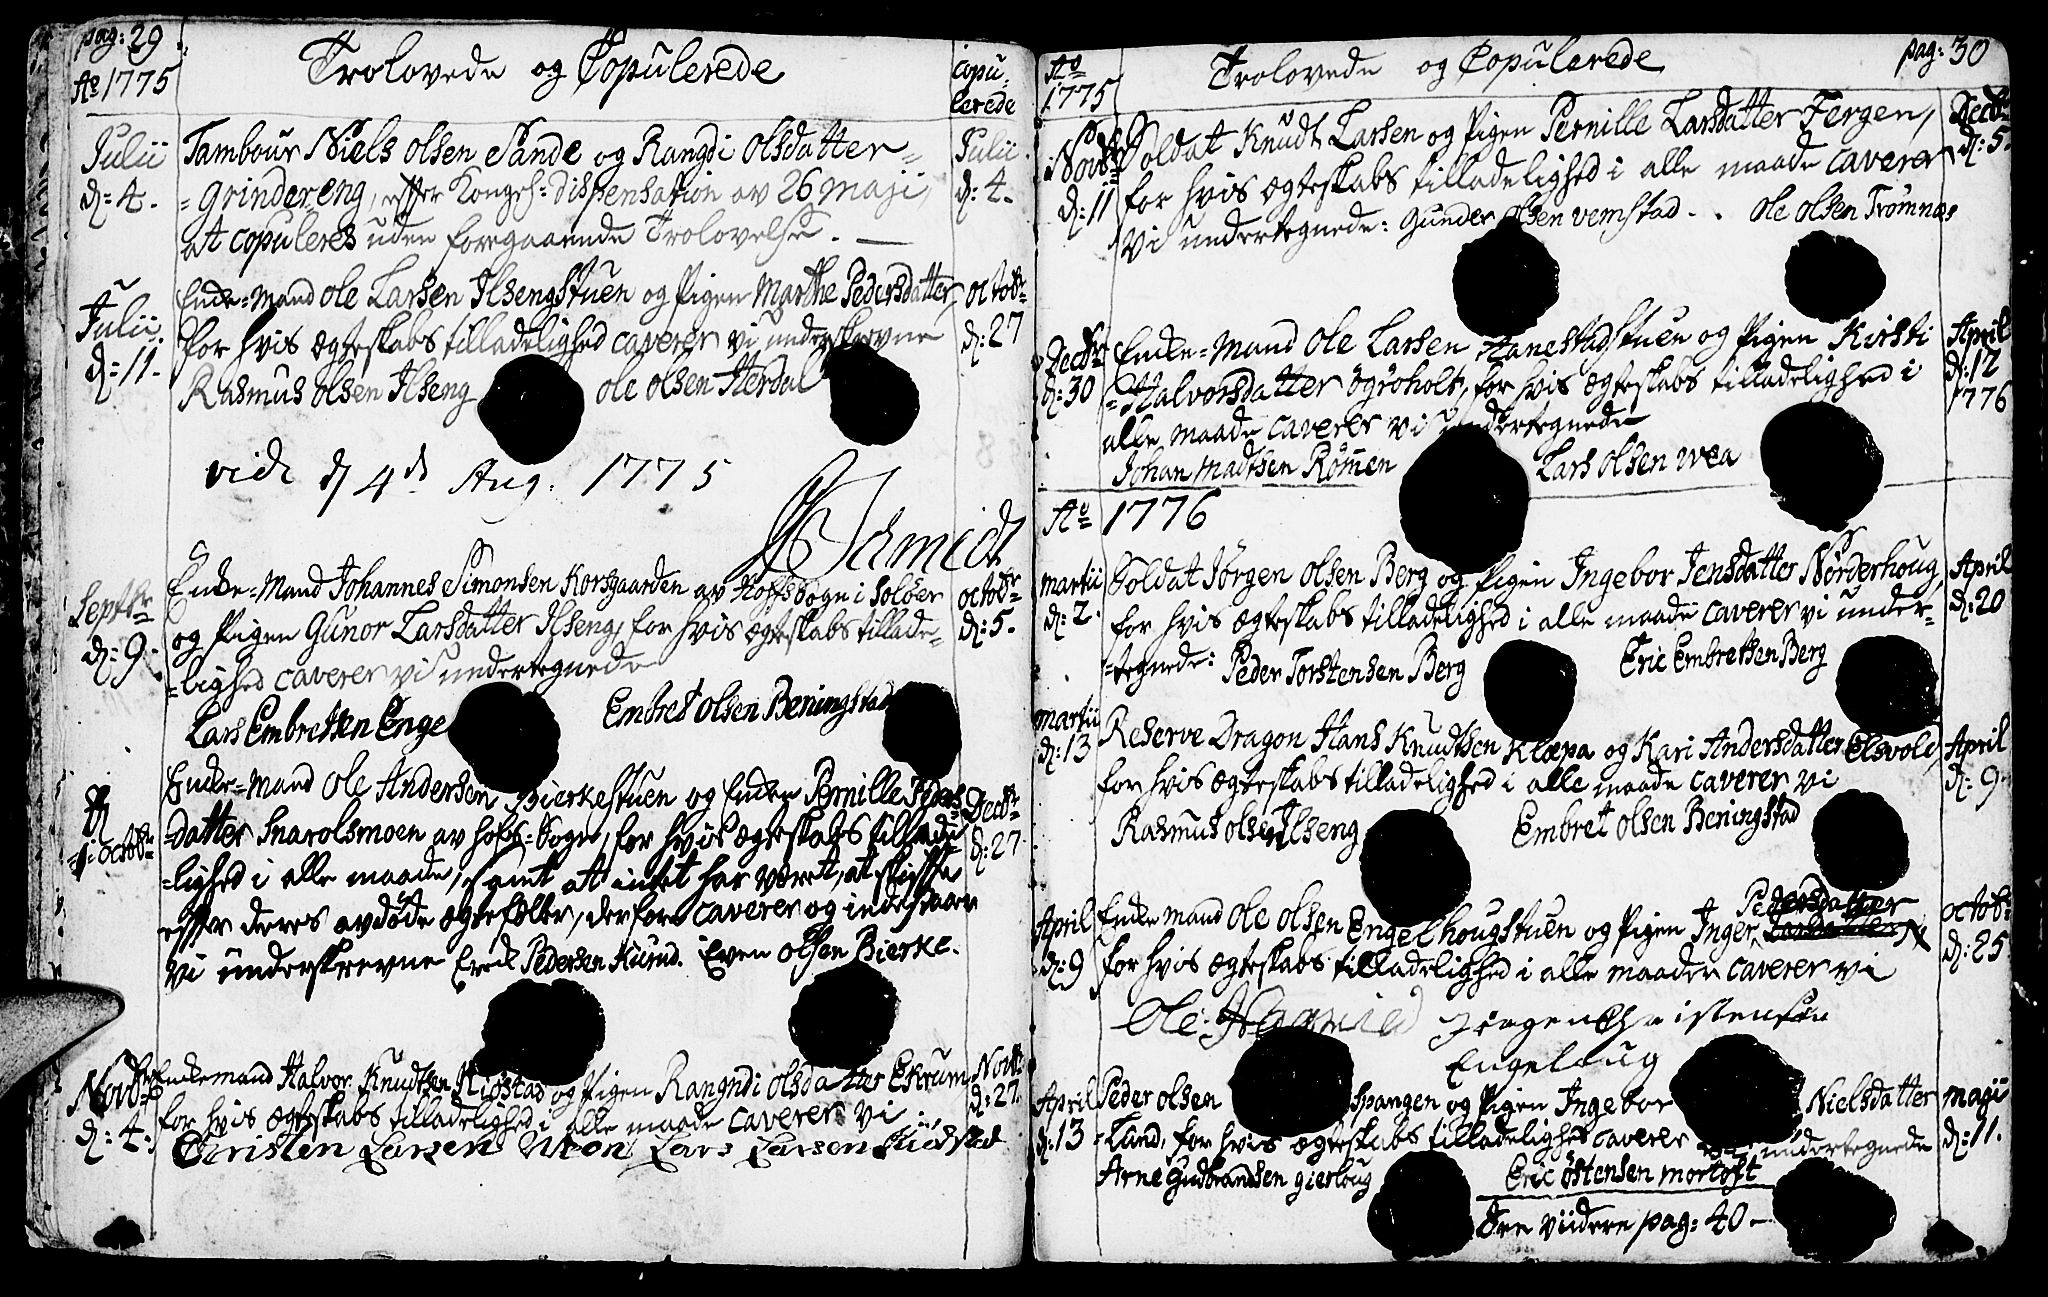 pag: 29
Ao 1775
Trolovede og Copulerede
copu-
lerede
Julii
d: 4.
Tambour Niels Olsen Sande og Rangdi Olsdatter
Julii
d: 4.
=Grindereng, efter Kongel: dispensation av 26 Maji,
at copuleres uden foregaaende Trolovelse.
Julii
d: 11.
Enke=Mand Ole Larsen Ilsengstuen og Pigen Marthe Pedersdatter,
octobr
d: 27
for hvis ægteskabs tilladelighed caverer vi underskrevne
Rasmus Olsen Ilseng
Ole Olsen Herdal
vidi d 4de Aug. 1775
Schmidt
Septbr
d: 9.
Enke=Mand Johannes Simonsen Korsgaarden av Hofsogn i Soløer
octobr
d: 5.
og Pigen Gunor Larsdatter Ilseng, for hvis ægteskabs tillade-
=lighed caverer vi undertegnede
Lars Embretsen Enge
Embret Olsen Beningstad
octobr
Enke=Mand Ole Andersen Bierkestuen og Enken Pernille
Decbr
d: 27
datter Snarolsmoen av Hofs=Sogn, for hvis ægteskabs tillade
=lighed i alle maade, samt at intet har været, at skifte
efter deres avdøde ægtefæller, derfore caverer og indestaaer
vi underskrevne Erich Pedersen Kurud. Even Olsen Bierke.
Novbr
d: 4.
Enkemand Halvor Knudtsen Kiøstad og Pigen Rangndi Olsdatter Ekrum,
Novbr
d: 27.
for hvis ægteskabs tilladelighed i alle maade caverer vi
Christen Larsen Lars Larsen Kiøstad
pag: 30
Ao
1775
Trolovede og Copulerede
Novbr
d: 11
Soldat Knudt Larsen og Pigen Pernille Larsdatter Fergen,
Decbr
d: 5.
for hvis ægteskabs tilladelighed i alle maade caverer
vi undertegnede: Gunder Olsen Vemstad. Ole Olsen Trømnæs
Decbr
d: 30
Enke=Mand Ole Larsen Hanestadstuen og Pigen Kirsti
April
d: 12
1776
=Halvorsdatter Øgroholt, for hvis ægteskabs tilladelighed i
alle maade caverer vi undertegnede
Johan Madtsen Rømen
Lars Olsen Wea
Ao 1776
Martii
d: 2.
Soldat Jørgen Olsen Berg og Pigen Ingebor Jensdatter Nørderhoug,
April
d: 20
for hvis ægteskabs tilladelighed i alle maade caverer vi under-
=tegnede: Peder Torstensen Berg
Eric Embretsen Berg
Martii
d: 13
Reserve Dragon Hans Knudtsen Klæpa og Kari Andersdatter Elsvold,
April
d: 9.
for hvis ægteskabs tilladelighed i alle maade caverer vi
Rasmus Olsen Ilseng
Embret Olsen Beningstad
April
d: 9
Enke mand Ole Olsen Engelhougstuen og Pigen Inger Pedersdatter
octob:
d: 25
for hvis ægteskabs tilladelighed i alle maader caverer vi
Ole
Jörgen Christensen
Engeloug
April
d: 13
Peder Olsen Spangen og Pigen Ingebor Nielsdatter
Maji
d: 11.
=Lund, for hvis ægteskabs tilladelighed caverer vi undertegnede
Arne Gudbrandsen Gierloug
Eric Østensen Mortoft
See viidere pag: 40